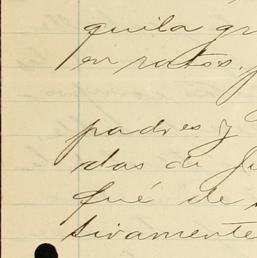 quila gr
en ratos.
padres y
das de Ju
fué de
sivamente